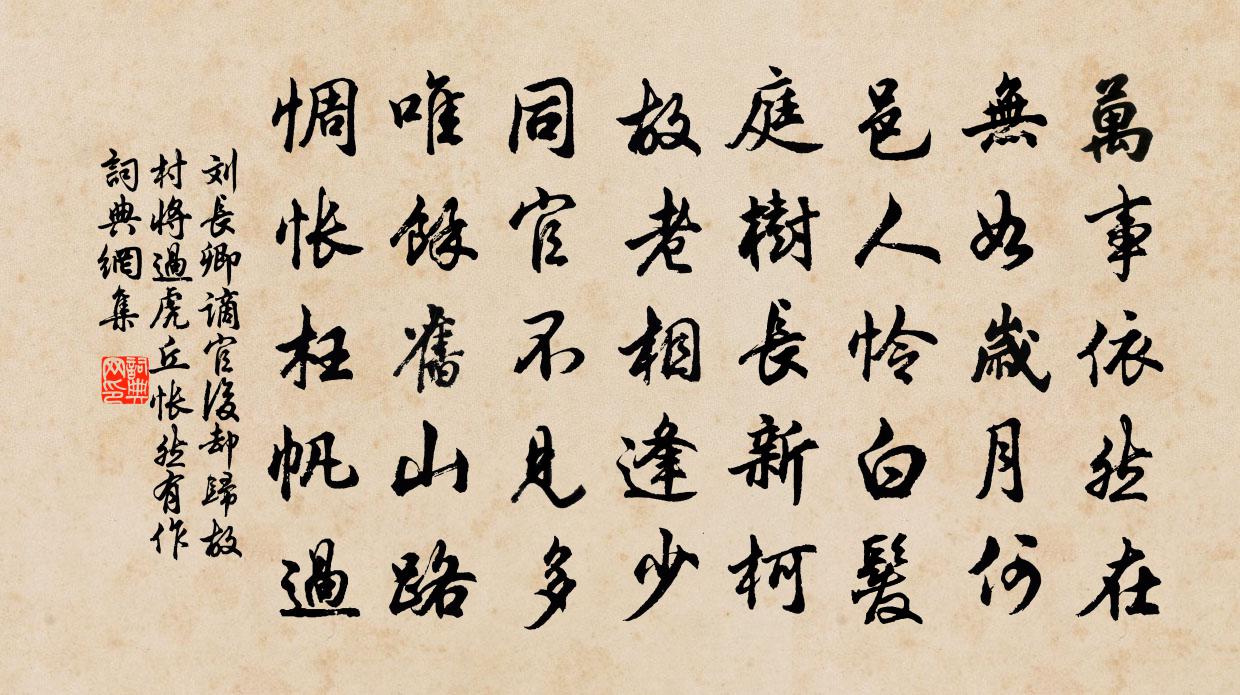 萬事依然在
無如歲月何
邑人怜白髮
庭樹長新柯
故老相逢少
同官不見多
唯餘舊山路
惆悵枉帆過
刘長卿謫官後却歸故
村將過虎丘悵然有作
詞典網集
詞典网印